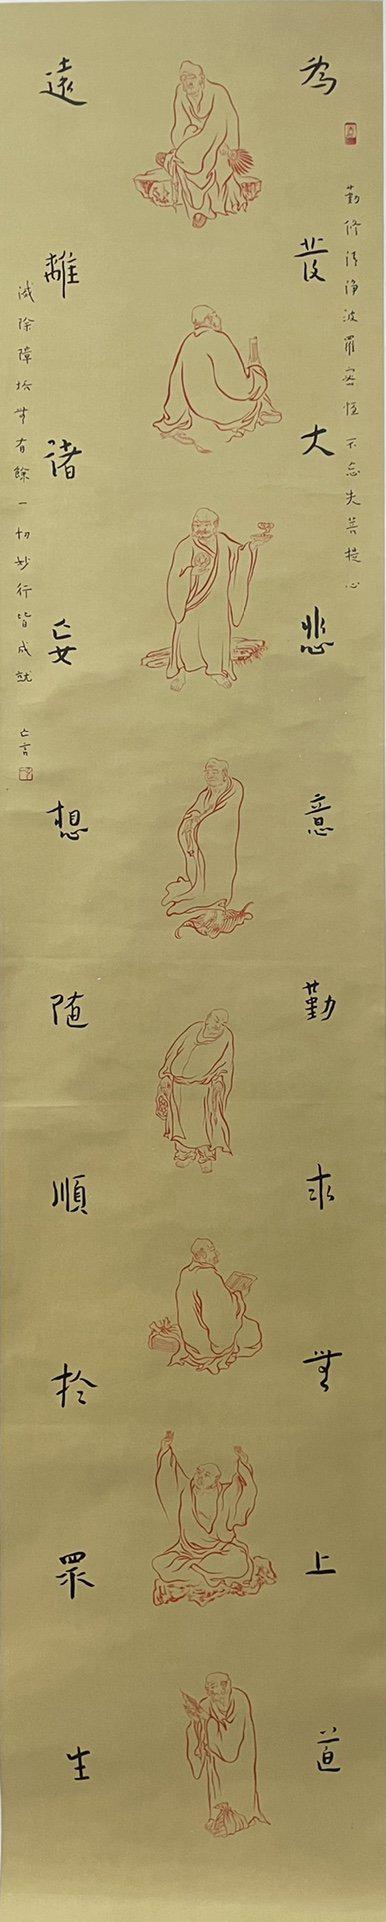 為發大悲意勤求無上道
勤修清淨波羅密恒不忘失菩提心
遠離諸妄想随順於眾生
滅除障垢無有餘一切妙行皆成就
亡言